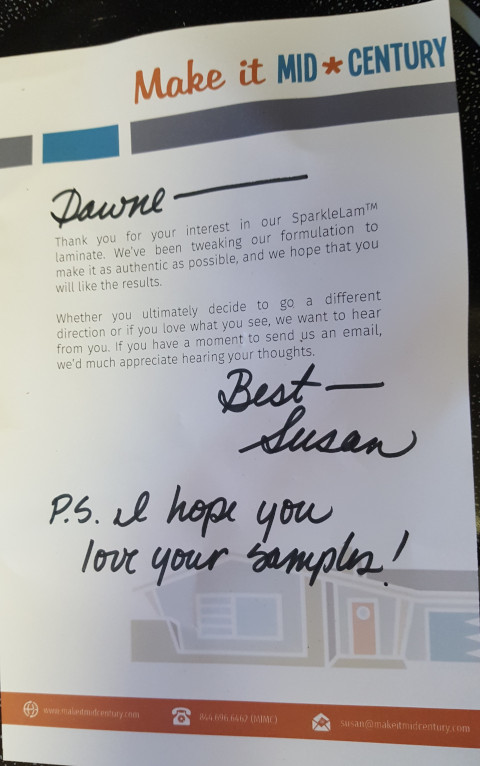 Make it MID*CENTURY
Dawne
Thank you for your interest in our SparkleLam™
laminate. We've been tweaking our formulation to
make it as authentic as possible, and we hope that you
will like the results.
Whether you ultimately decide to go a different
direction or if you love what you see, we want to hear
from you. If you have a moment to send us an email,
we'd much appreciate hearing your thoughts.
Best —
Susan
P.S. I hope you
love your samples!
www.makeitmidcentury.com 844.696.6462 (MIMC) susan@makeitmidcentury.com